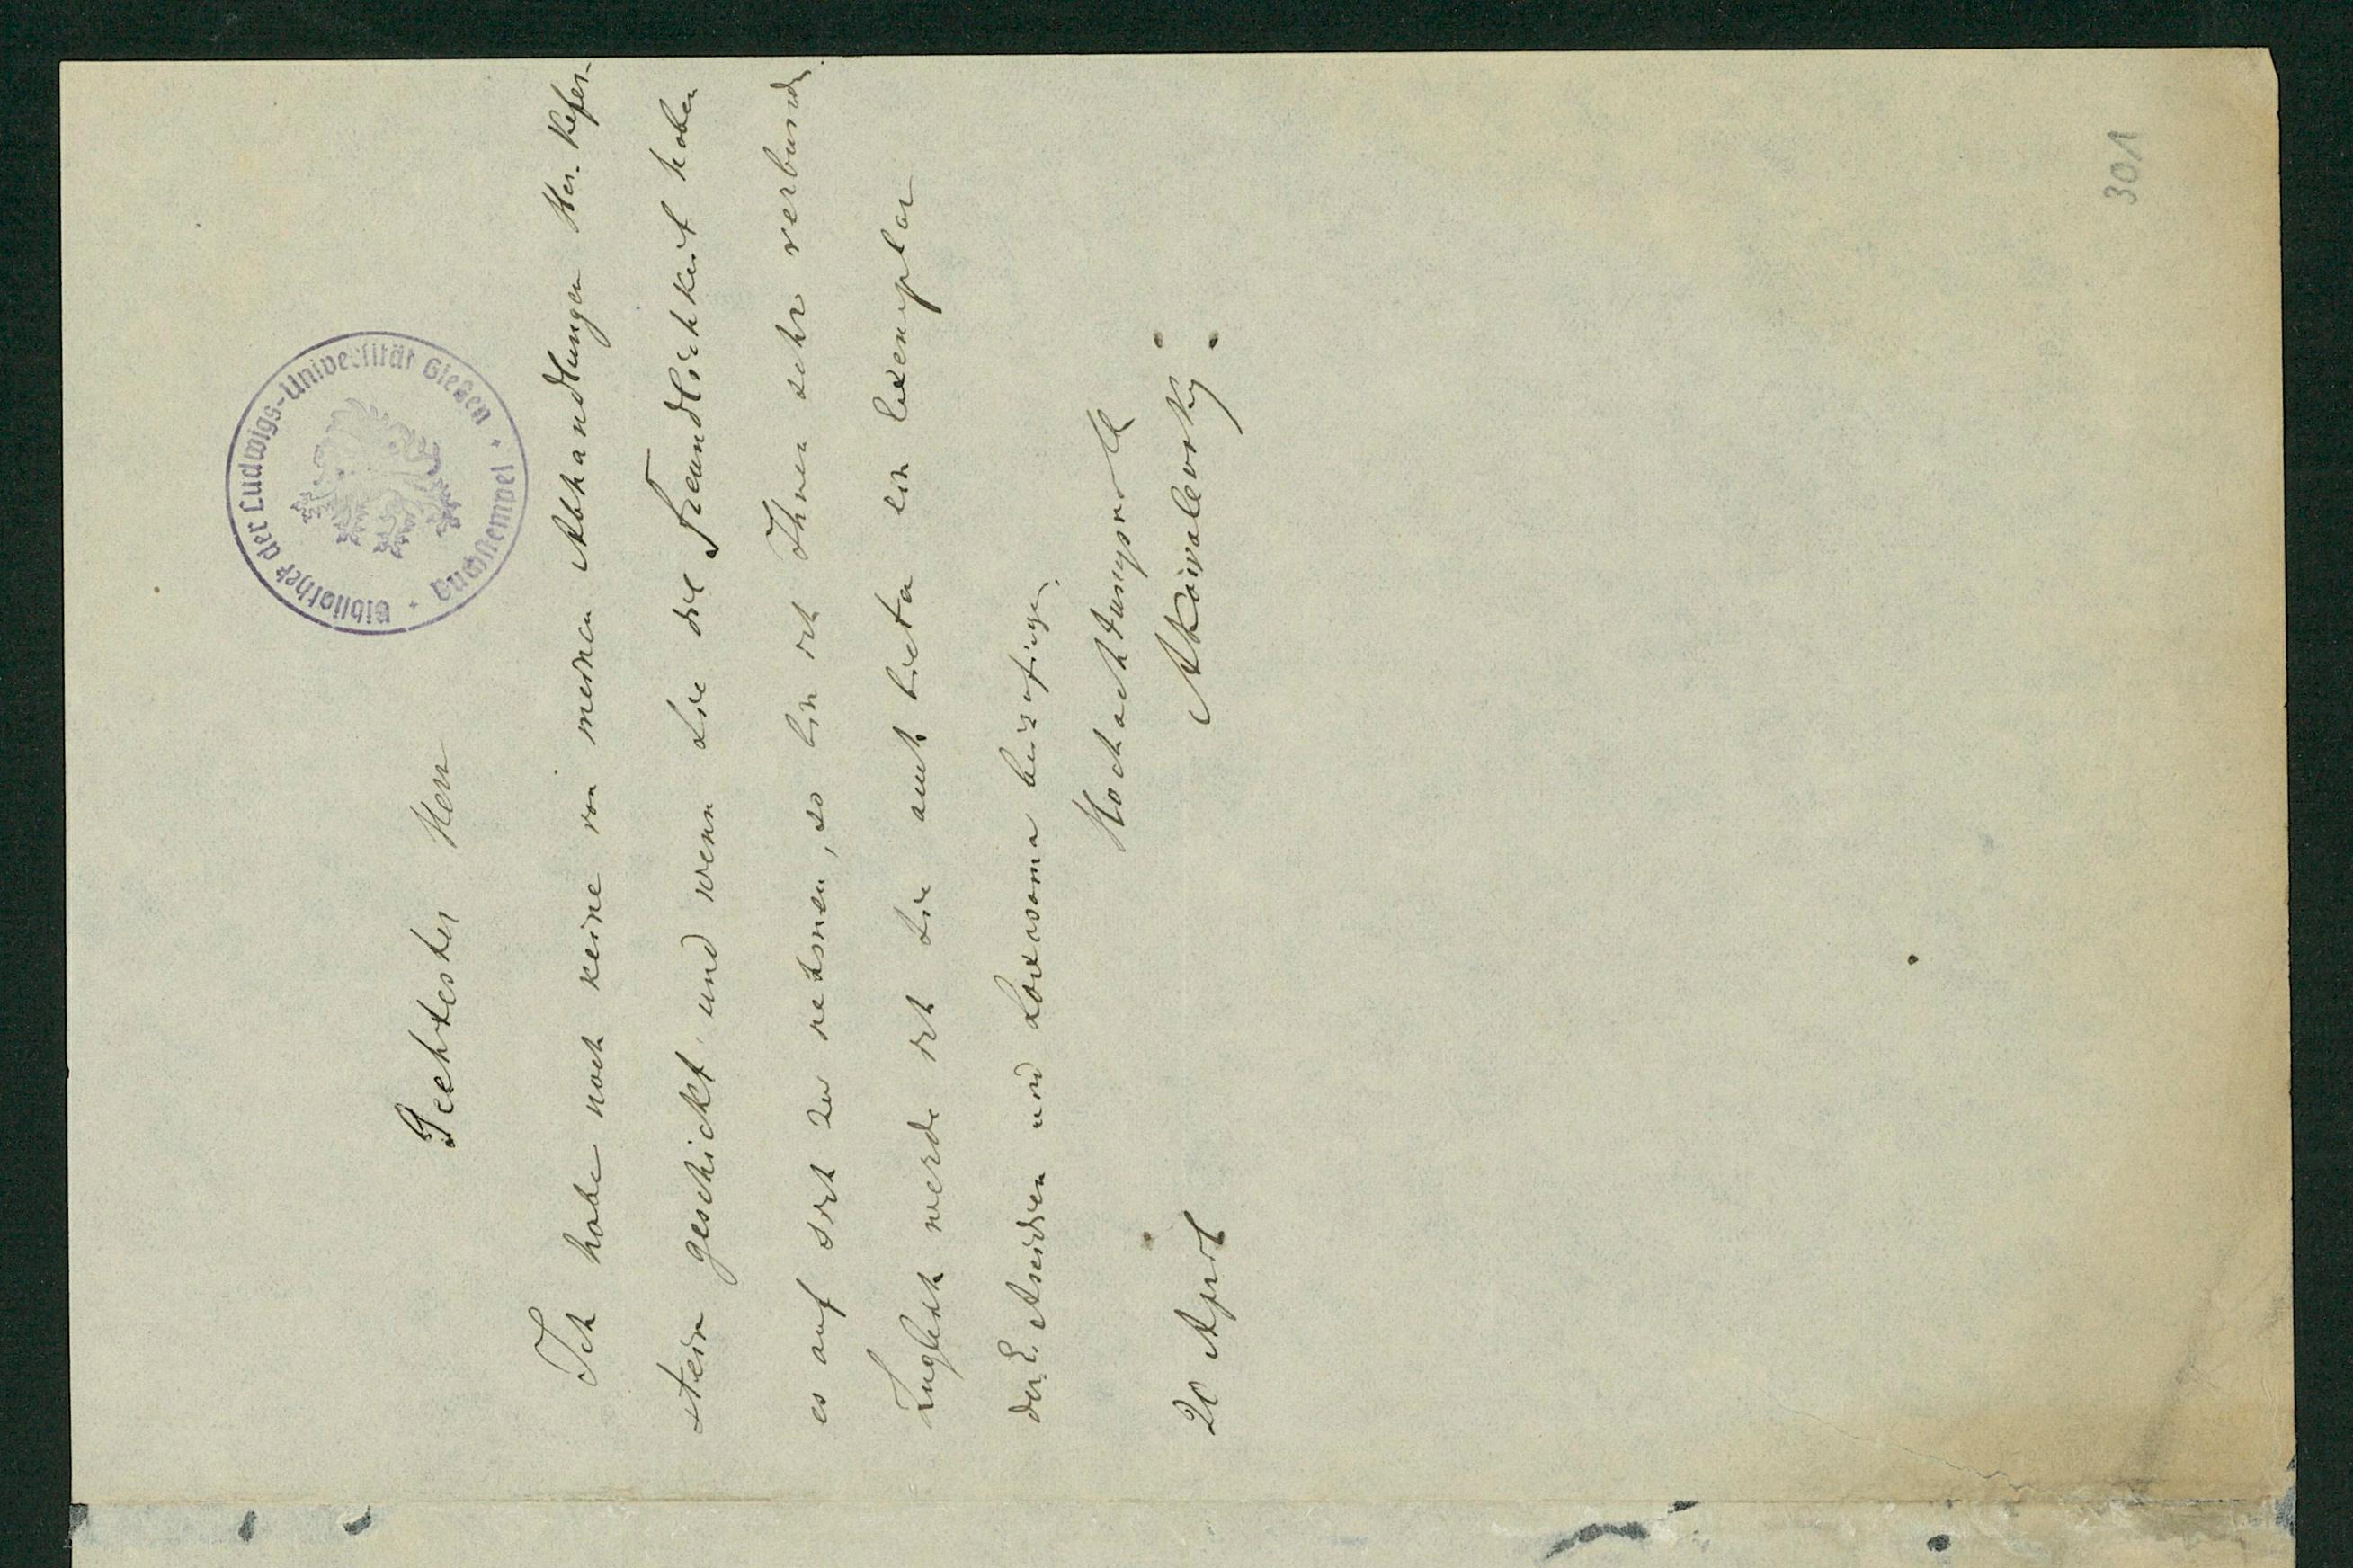 Bibliothek der Ludwigs-Universität Gießen · Buchstempel ·
Geehrtester Herr
Ich habe noch keine von meinen Abhandlungen Her. Kefer-
stein geschickt, und wenn Sie die Freundlichkeit haben
es auf sich zu nehmen, so bin ich Ihnen sehr verbunden.
Zugleich werde ich Sie auch bieten ein Exemplar
der E. Ascidien und Loxosoma beizufügen.
Hochachtungsvoll
AKowalevsky.
20 April
301